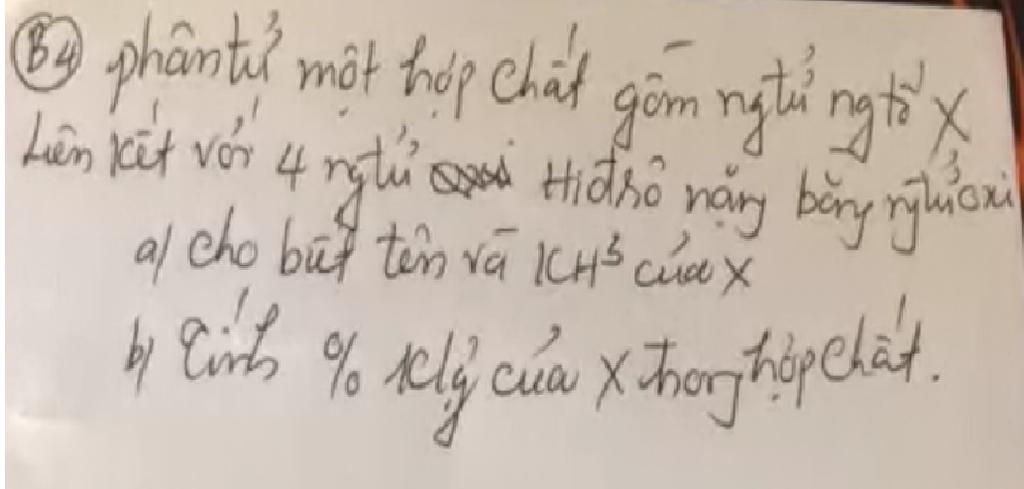 B4 phân tử một hợp chất gồm ngtử ngtố X
Liên kết với 4 ngtử Hiđrô nặng bằng ngtử oxi
a/ Cho biết tên và KHH của X
b/ Tính % Klg của X trong hợp chất.